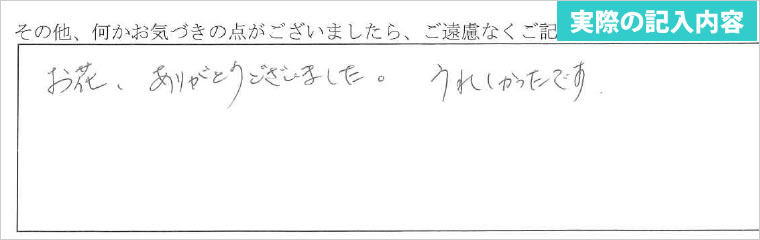 その他、何かお気づきの点がございましたら、ご遠慮なくご記
実際の記入内容
お花、ありがとうございました。 うれしかったです.